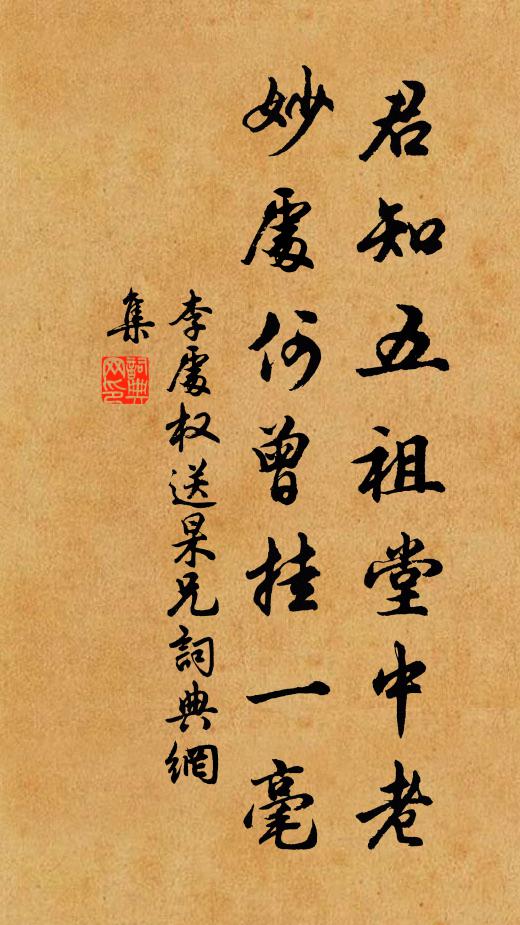 君知五祖堂中老
妙處何曾挂一毫
李處权送杲兄詞典網
集
詞典网印